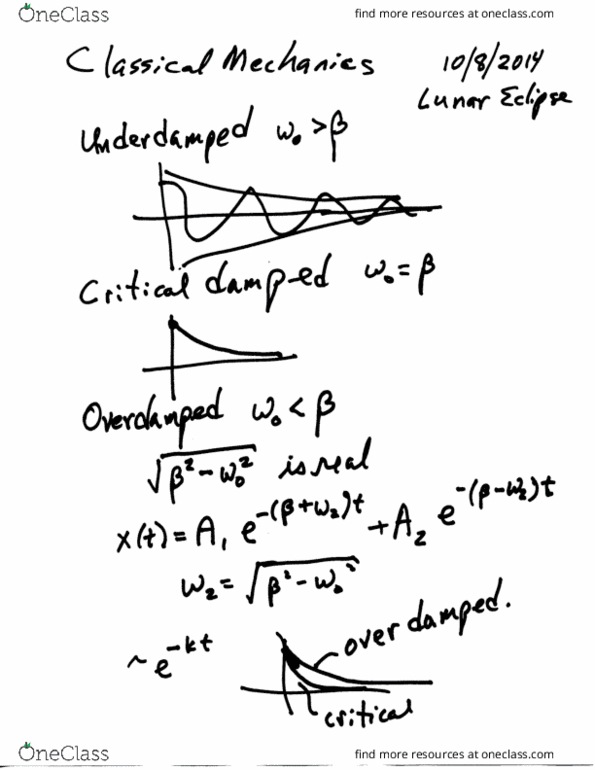 OneClass
find more resources at oneclass.com
Classical Mechanics 10/8/2014
Lunar Eclipse
Underdamped ω₀ > β
Critical damped ω₀ = β
Overdamped ω₀ < β
√(β² - ω₀²) is real
x(t) = A₁ e^-(β+ω₂)t + A₂ e^-(β-ω₂)t
ω₂ = √(β² - ω₀²)
~ e^-kt
over damped.
critical
OneClass
find more resources at oneclass.com